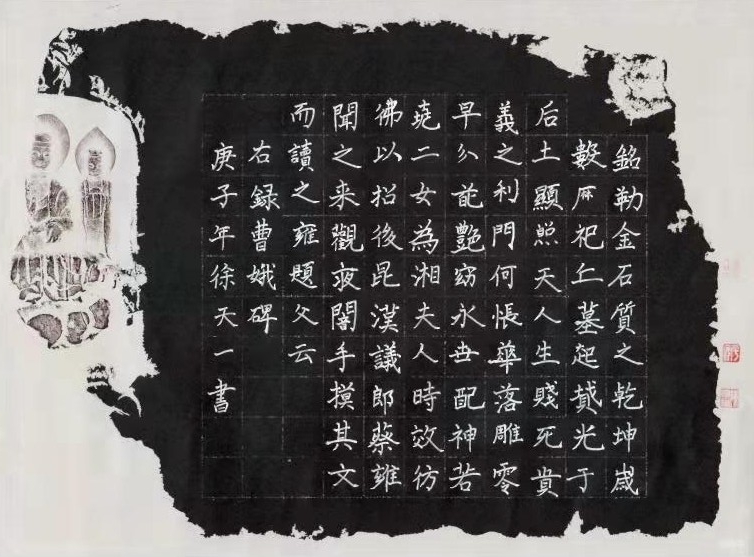 銘勒金石質之乾坤歲
數厤祀丘墓起墳光于
后土顯炤天人生賤死貴
義之利門何悵華落雕零
早分艷窈永世配神若
堯二女為湘夫人時效彷
佛以招後昆漢議郎蔡雍
聞之来觀夜闇手摸其文
而讀之雍題文云
右録曹娥碑
庚子年徐天一書